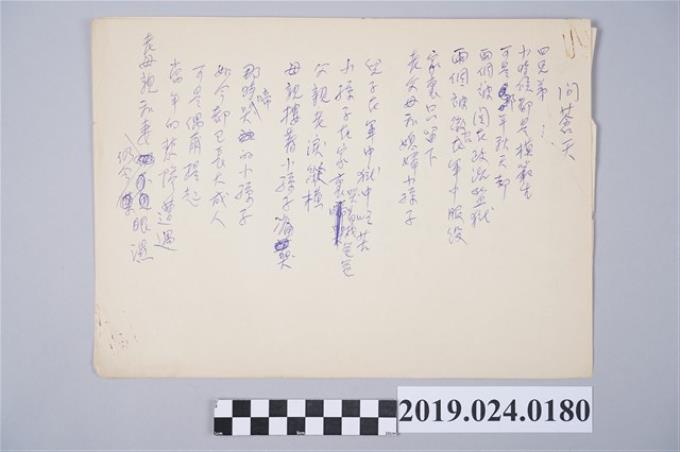 問蒼天
四兄弟…
小時候都是模範生
可是那年秋天都
兩個被關在政治監獄
兩個被徵召在軍中服役
家裏只留下
老父母和媳婦小孫子
兒子在軍中獄中吃苦
小孫子在家裏哭喊爸爸
父親老淚縱橫
母親摟着小孫子痛哭
那時啼哭的小孫子
如今都已長大成人
可是偶爾提起
當年的悲慘遭遇
老母親和妻仍會眼濕
2019.024.0180